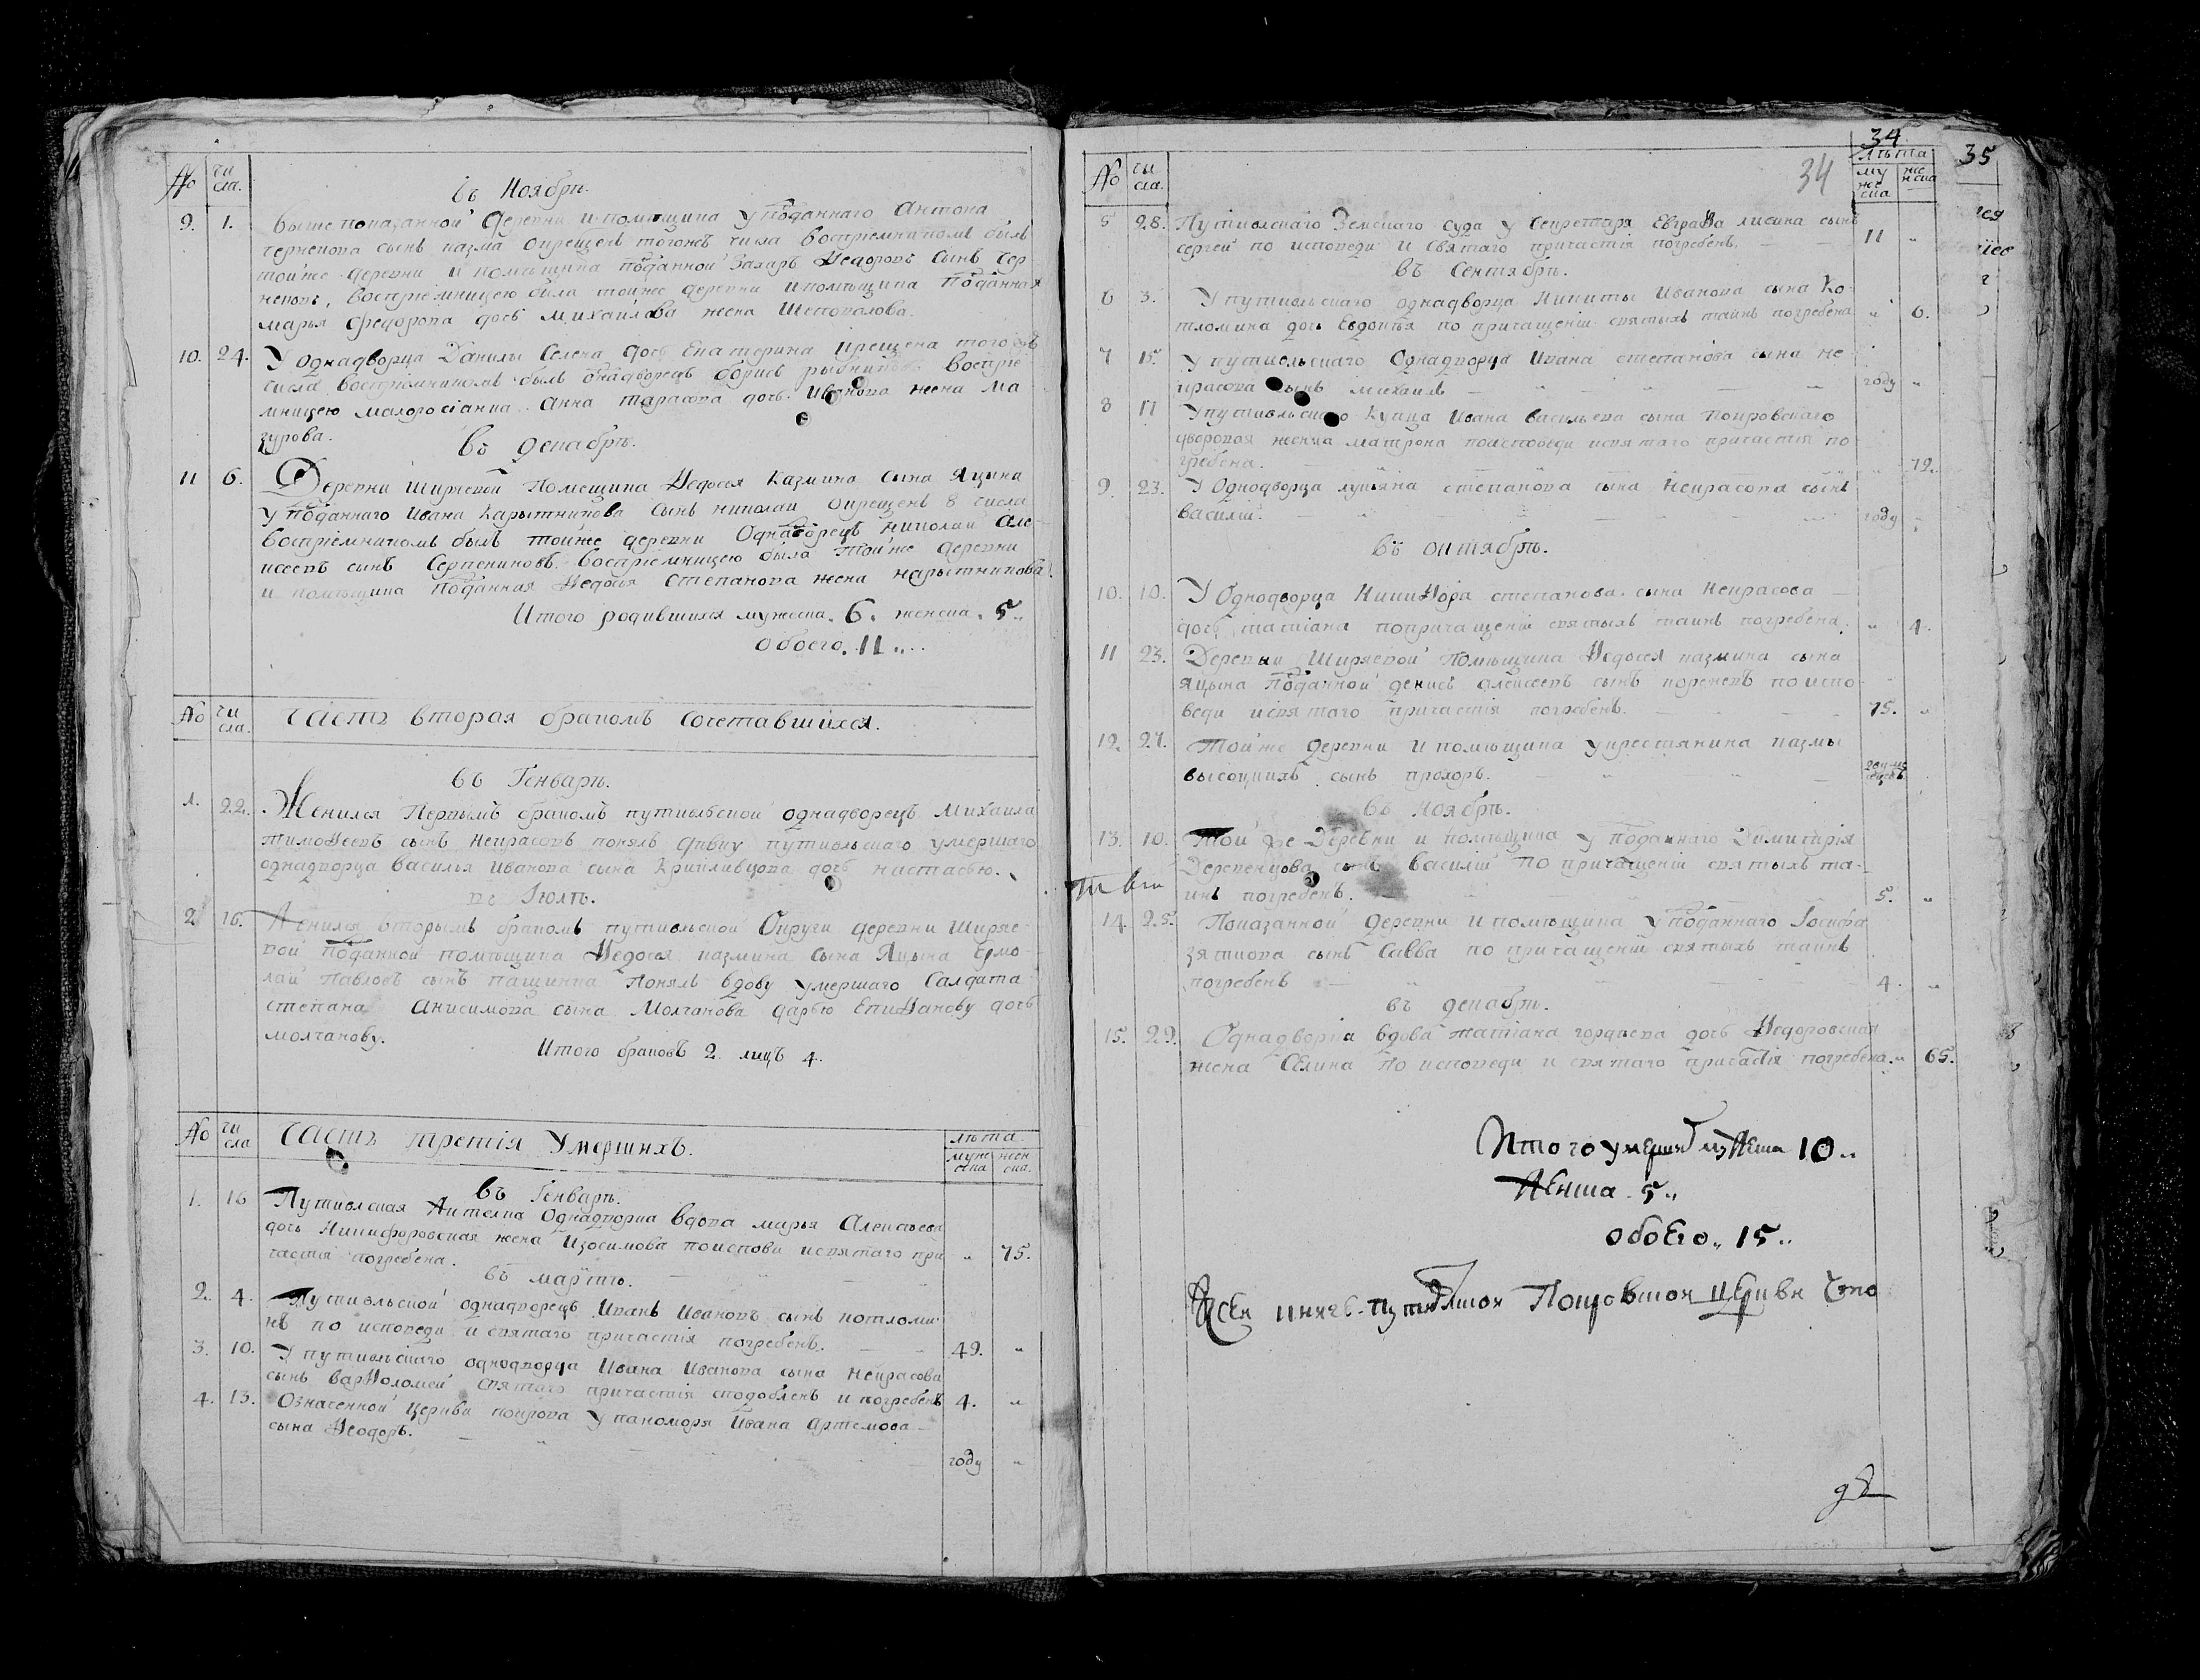 № чи
сла.
въ Ноябрѣ.
9. 1. выше показанной деревни и помѣщика у подданнаго Антона
черненова сынъ казма окрещенъ тогожъ числа воспріемникомъ былъ
тойже деревни и помѣщика подданной Захаръ Ѳедоровъ сынъ чер
неновъ, воспріемницею была тойже деревни и помѣщика подданная
марья федорова дочь михайлова жена Шеповалова.
10. 24. У однадворца Данилы Селена дочь Екатерина крещена тогожъ
числа воспріемникомъ былъ однадворецъ борисъ рыбниковъ воспріе
мницею малоросіянка Анна тарасова дочь Иванова жена Ма
зурова.
въ декабрѣ.
11 6. Деревни Ширяевой Помещика Ѳедосея Казмина Сына Яцына
у подданнаго Ивана Карытникова Сынъ николай окрещенъ 8 числа
воспріемникомъ былъ тойже деревни Однодворецъ николай Але
исеевъ сынъ Серпениновъ. воспріемницею была тойже деревни
и помѣщика подданная Ѳедосья Степанова жена Карытникова
Итого родившихся мужеска. 6. женска. 5..
обоего. 11...
№ чи
сла.
часть вторая бракомъ сочетавшихся.
въ Генварѣ.
1. 22. Женился Первымъ бракомъ путивльской однадворецъ Михаила
тимоѲеевъ сынъ Некрасовъ понялъ дѣвку путивльскаго умершаго
однадворца Василья Иванова сына Крикливцова дочь настасью.
въ Іюлѣ.
2 16. Женился вторымъ бракомъ путивльской Округи деревни Ширяе
вой подданной помѣщика Ѳедосея казмина сына Яцына Ермо
лай Павловъ сынъ пащинка Понялъ вдову умершаго Салдата
степана Анисимова сына Молчанова дарью ЕпиѲанову дочь
молчанову.
Итого браковъ 2 лицъ 4.
№ чи
сла
Часть третія Умершихъ.
лѣта.
муже
ска
жен
ска.
въ Генварѣ.
1. 16 Путивлская Жителка Однадворка вдова марья Алексѣева
дочь Никифоровская жена Изосимова поисповеди исвятаго при
частія погребена. „ 75.
въ мартѣ.
2. 4. Путивльской однадворецъ Иванъ Ивановъ сынъ котломи
нъ по исповеди и святаго причастія погребенъ. 49. „
3. 10. У путивльскаго однодворца Ивана Иванова сына некрасова
сынъ варѲоломей святаго причастія сподобленъ и погребенъ 4. „
4. 13. Означенной Церкви покрова у паномаря Ивана Артемова
сына Ѳеодоръ.
году „
34
34
35
№ чи
сла.
лѣта
му
же
ска
же
нска
5 28. Путивлскаго Земскаго суда у Секретаря ЕвграѲа лисина сынъ
сергей по исповеди И Святаго причастія погребенъ. 11 „
въ Сентябрѣ.
6 3. У путивльскаго однадворца Никиты Иванова сына Ко
тломина дочь Евдокѣя по причащеніи святыхъ таинъ погребена „ 6.
7 15. у путивльскаго Однадворца Ивана степанова сына не
красова сынъ михаилъ году „
8 17 у путивльскаго Купца Ивана васильева сына покровскаго
дворовая женка матрона поисповеди исвятаго причастія по
гребена. „ 72.
9. 23. У Однодворца лукьяна степанова сына Некрасова сынъ
василій. году
въ октябрѣ.
10. 10. У Однодворца НикиѲора степанова сына Некрасова
дочь татіана попричащеніи святыхъ таинъ погребена. „ 4.
11 23. Деревни Ширяевой Помѣщика Ѳедосея казмина сына
Яцына подданной денисъ алексеевъ сынъ кореневъ по испо
веди исвятаго причастія погребенъ. 75. „
12. 27. Тойже деревни И помѣщика укрестянина казмы
высоцкихъ сынъ прохоръ.
въ Ноябрѣ.
13. 10. Той же Деревни и помѣщика у подданнаго Димитрія
Деревенцова сынъ василій по причащеніи святыхъ та-
инъ погребенъ. 5. „
14. 25. Показанной деревни И помѣщика у подданнаго Іосифа
зяткова сынъ Савва по причащеніи святыхъ таинъ
погребенъ 4. „
въ декабрѣ.
15. 29. Однадворка вдова татіана гордѣева дочь Ѳедоровская
жена СЕлина по исповеди и святаго причастія погребена. „ 65.
Итого умершихъ мужеска 10..
женска. 5..
обоего.. 15..
Ксей книге Путивлской Покровской церкви